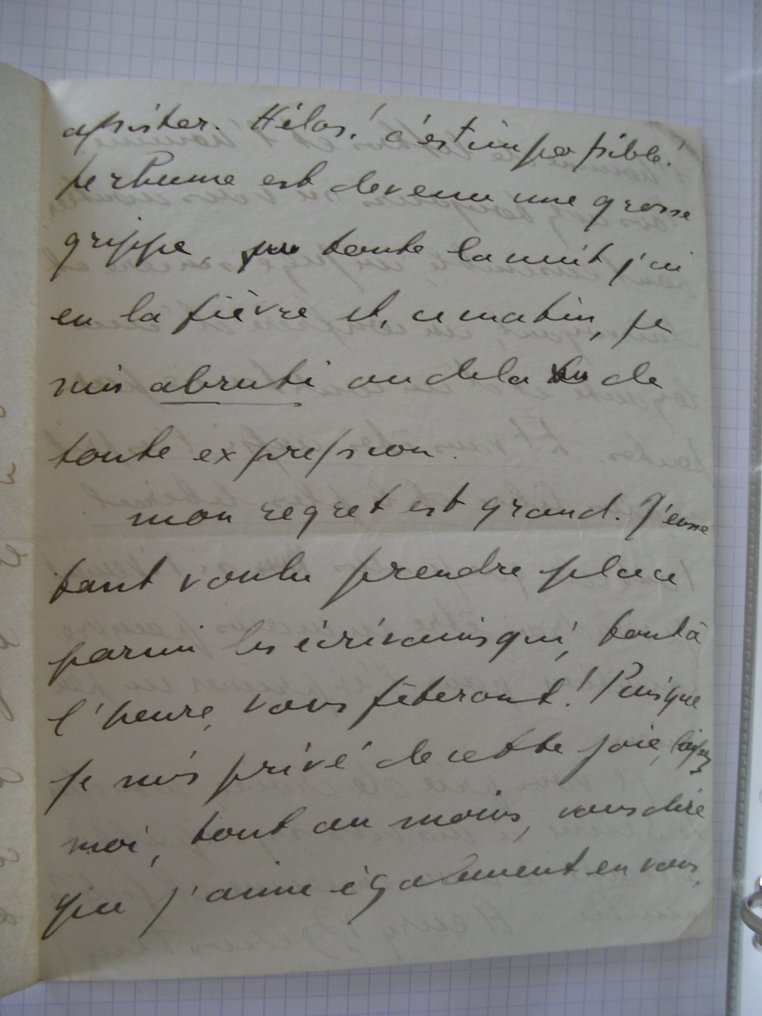 assister. Hélas! c'est impossible!
Le rhume est devenu une grosse
grippe, toute la nuit j'ai
eu la fièvre et, ce matin, je
suis abruti au delà de
toute expression.
Mon regret est grand. J'eusse
tant voulu prendre place
parmi les écrivains qui, tout à
l'heure, vous fêteront! Puisque
je suis privé de cette joie, laissez
moi, tout au moins, vous dire
que j'aime également en vous,